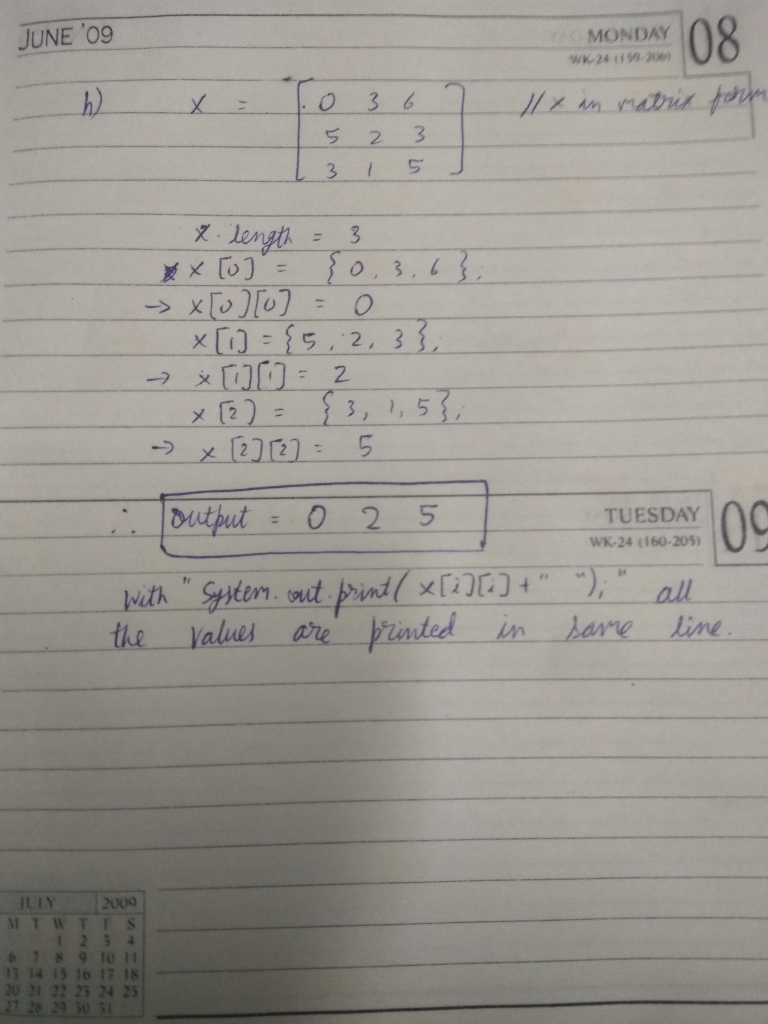 JUNE '09
MONDAY 08
WK-24 (159-206)
h) x = [ 0 3 6 // x in matrix form
5 2 3
3 1 5 ]
x. length = 3
x [0] = {0, 3, 6};
→ x[0][0] = 0
x[1] = {5, 2, 3};
→ x[1][1] = 2
x[2] = {3, 1, 5};
→ x[2][2] = 5
∴ output = 0 2 5
TUESDAY 09
WK-24 (160-205)
With "System.out.print( x[i][i] + " ");" all
the values are printed in same line.
JULY 2009
M T W T F S
1 2 3 4
6 7 8 9 10 11
13 14 15 16 17 18
20 21 22 23 24 25
27 28 29 30 31